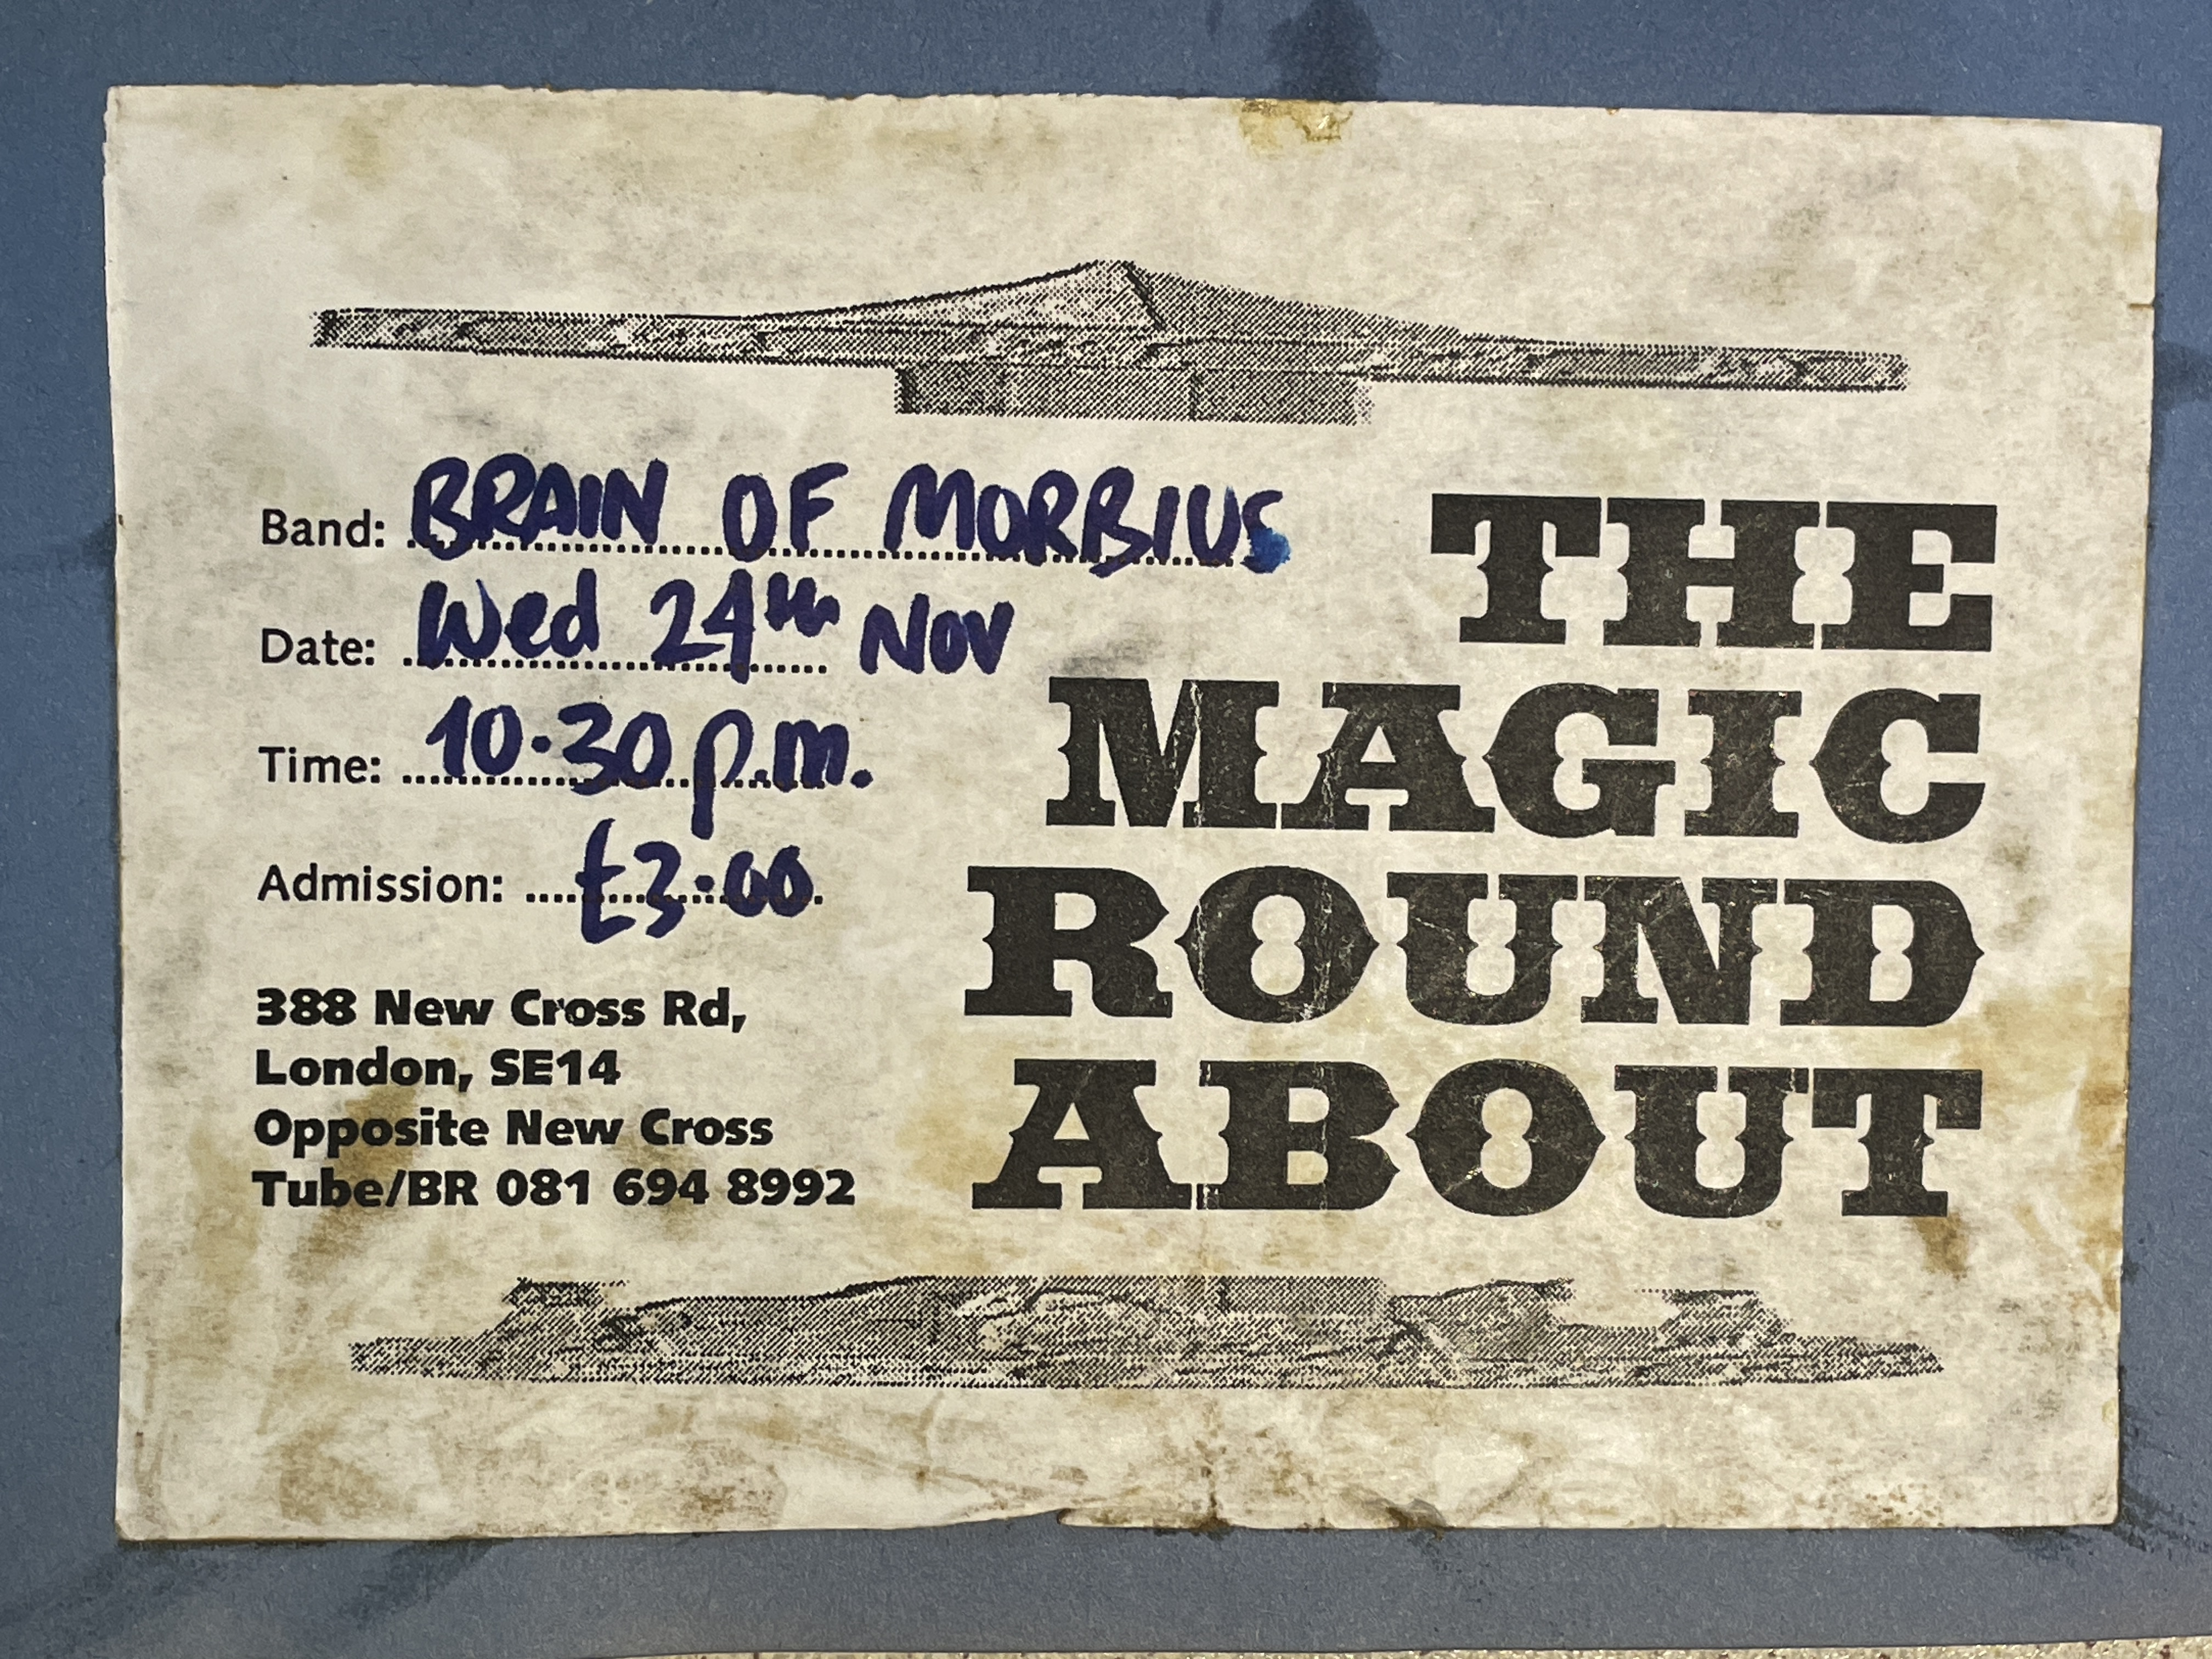 Band: BRAIN OF MORBIUS
Date: Wed 24th Nov
Time: 10.30 p.m.
Admission: £3.00
388 New Cross Rd,
London, SE14
Opposite New Cross
Tube/BR 081 694 8992
THE
MAGIC
ROUND
ABOUT